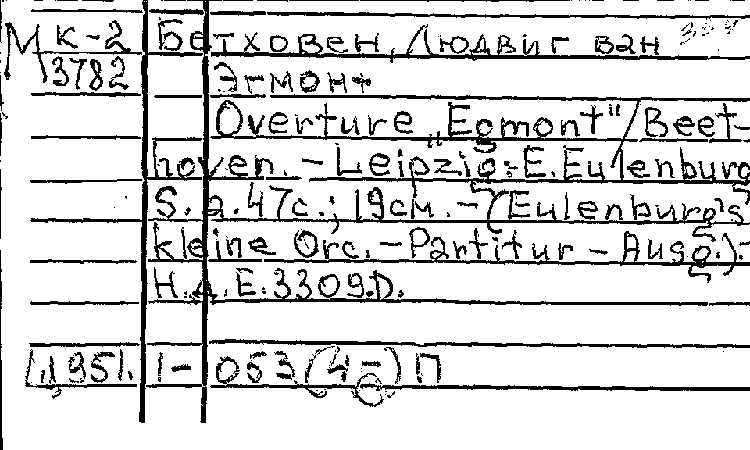 М к-2 Бетховен, Людвиг ван
3782 Эгмонт
Overture „Egmont"/Beet-
hoven. - Leipzig: E. Eulenburg
S. a. 47с.; 19см. - (Eulenburg's
kleine Orc. - Partitur - Ausg.). -
H. A. E. 3309. D.
1- 053(4-)П